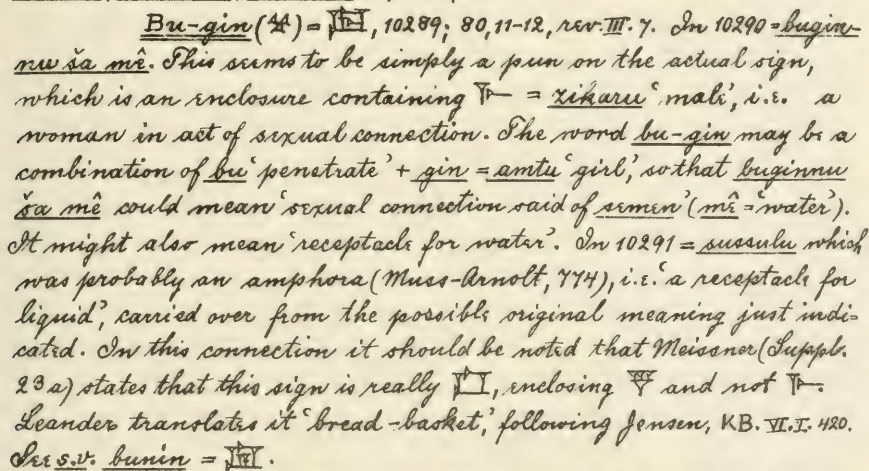 Bu-gin(𒁶) = 𒇥, 10289; 80, 11-12, rev. III. 7. In 10290 = bugin-
nu ša mê. This seems to be simply a pun on the actual sign,
which is an enclosure containing = zikaru 'male', i.e. a
woman in act of sexual connection. The word bu-gin may be a
combination of bu 'penetrate' + gin = amtu 'girl', so that buginnu
ša mê could mean 'sexual connection said of semen' (mê = 'water').
It might also mean 'receptacle for water'. In 10291 = sussulu which
was probably an amphora (Muss-Arnolt, 774), i.e. 'a receptacle for
liquid', carried over from the possible original meaning just indi-
cated. In this connection it should be noted that Meissner (Suppl.
23 a) states that this sign is really , enclosing and not
Leander translates it 'bread-basket,' following Jensen, KB. VI. I. 420.
See s.v. bunin = .